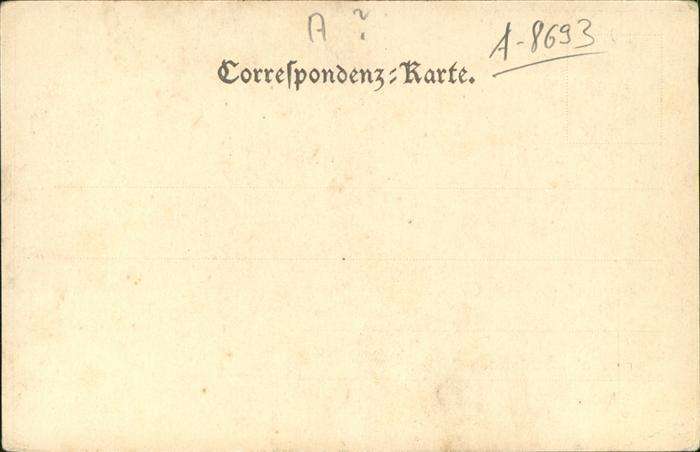 A ?
A-8693
Correſpondenz-Karte.